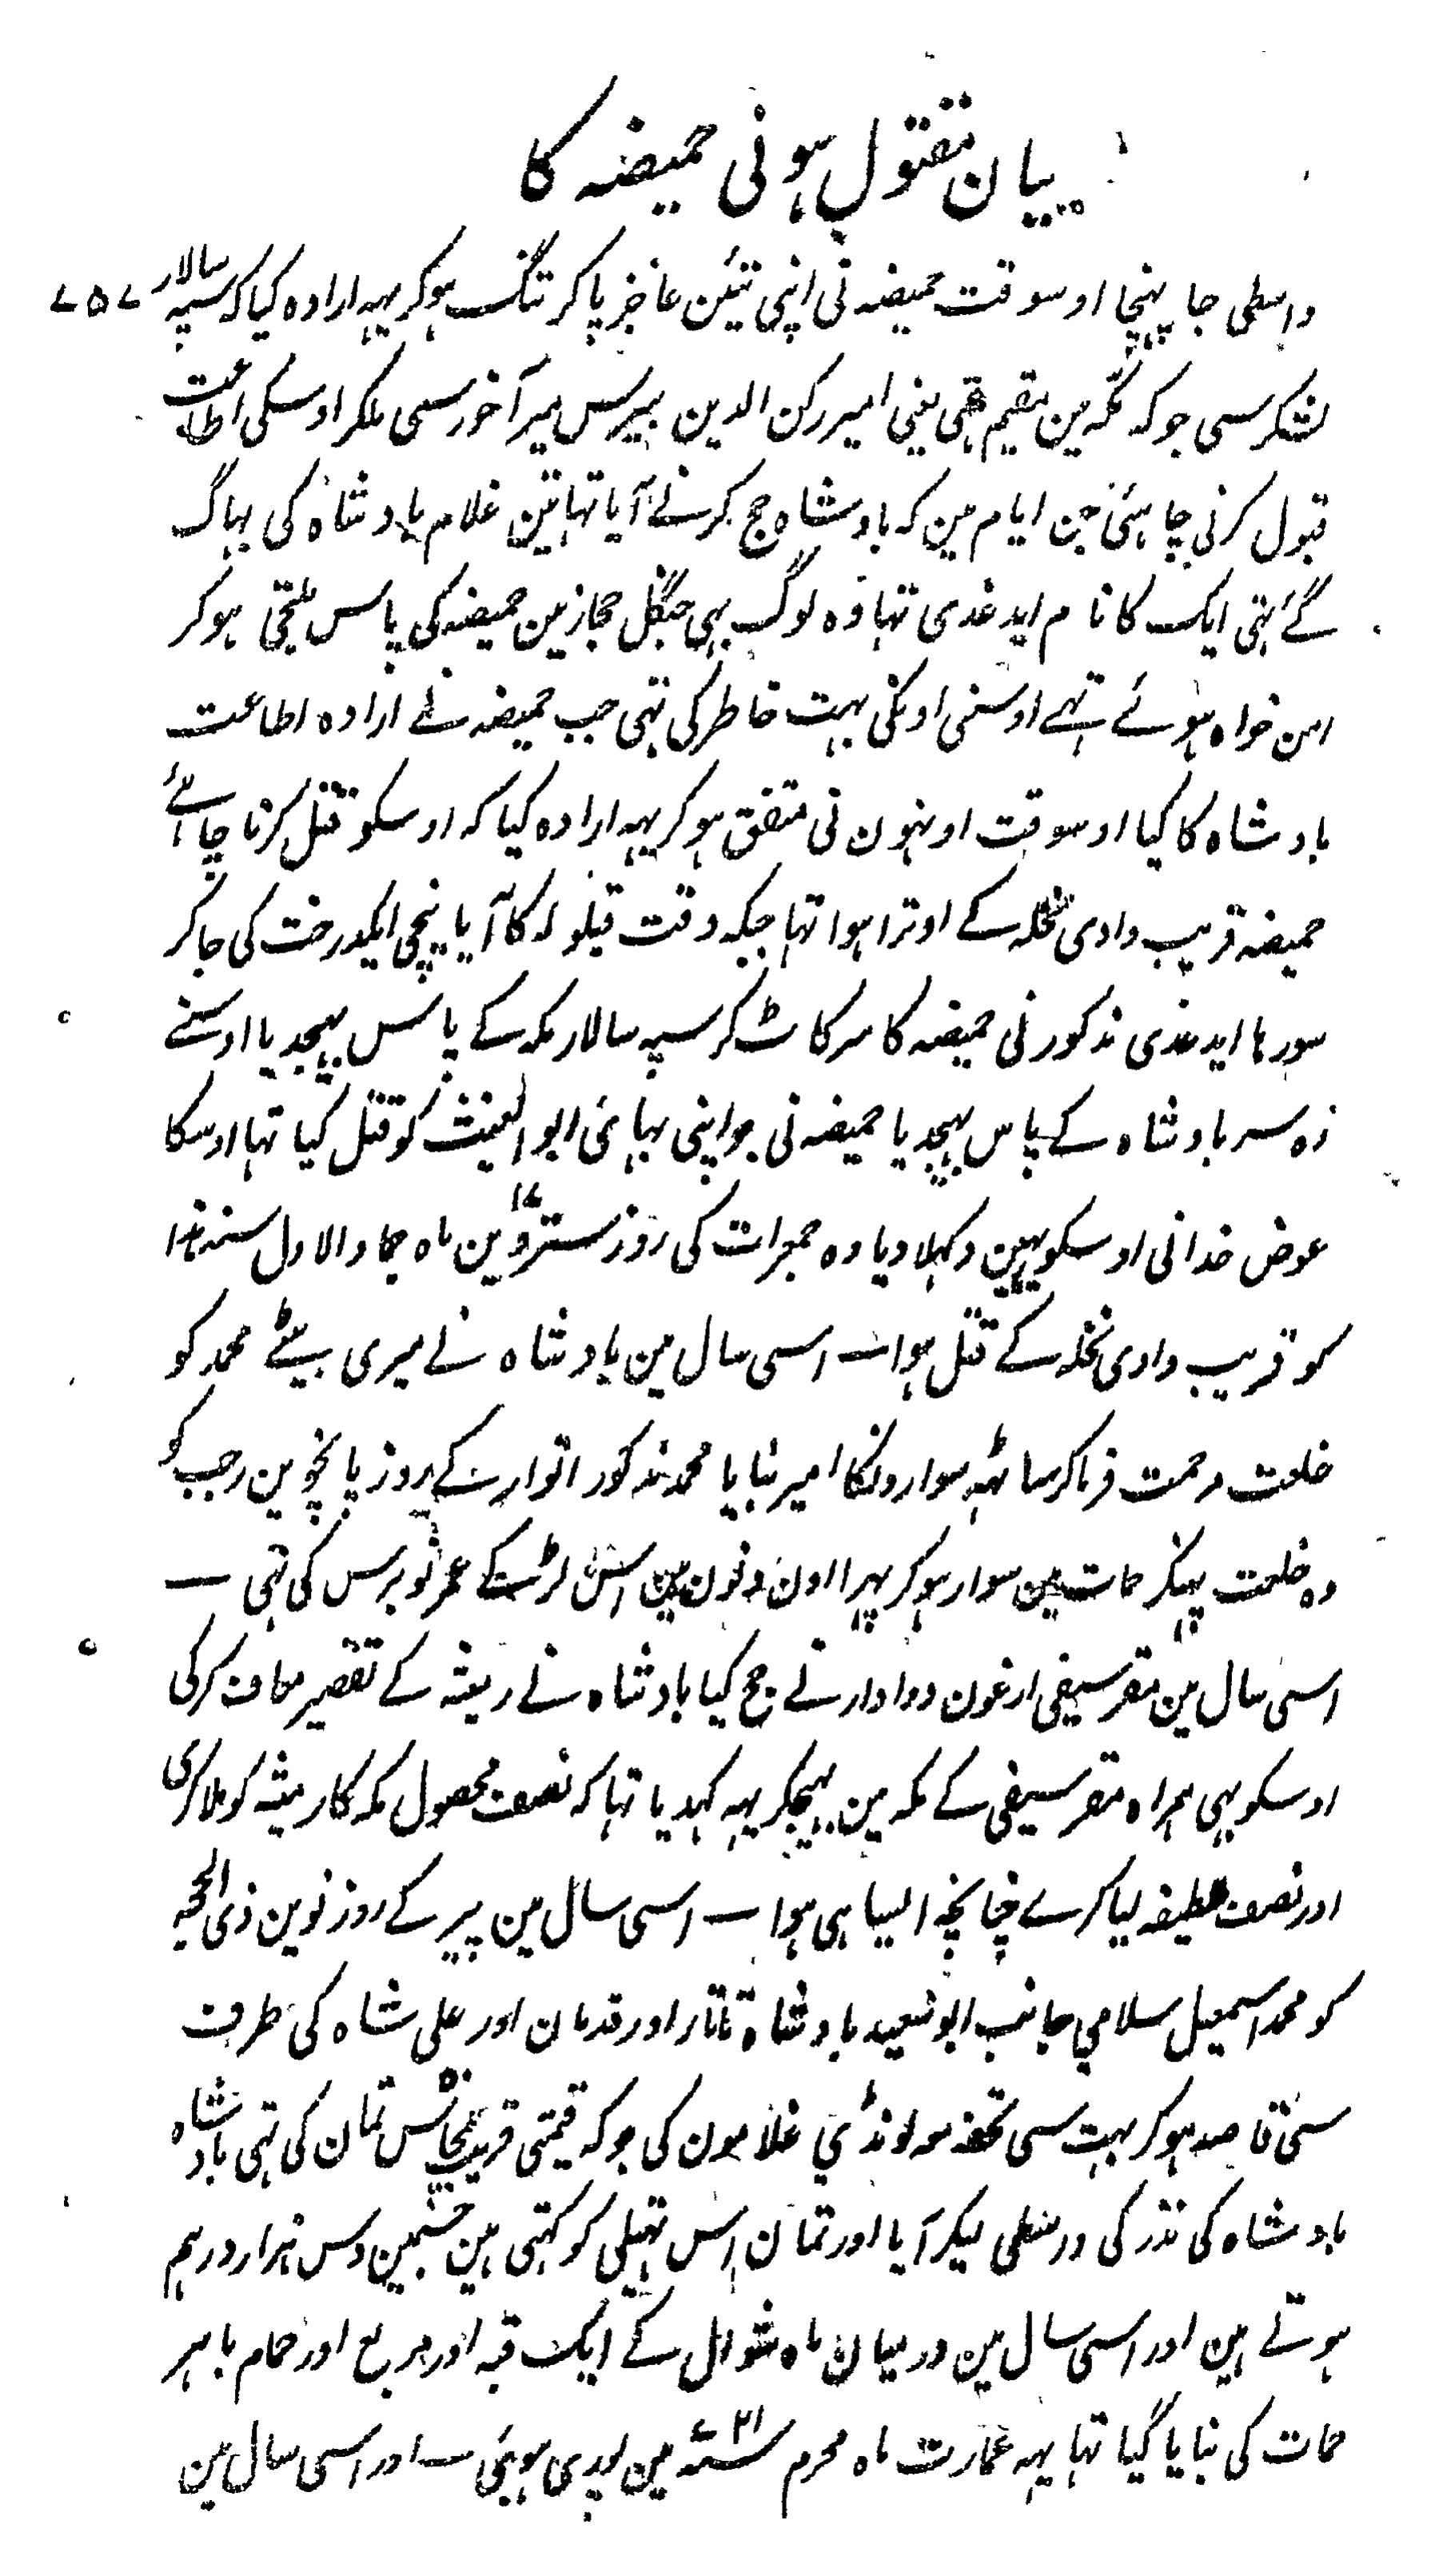 بیان مقتول ہونی حمیضہ کا
۷۵۷
واسطی جا پہنچا اوسوقت حمیضہ نی اپنی تئین عاجز پا کر تنگ ہوکر یہہ ارادہ کیا کہ سپہ سالار
لشکر سی جو کہ مکہ مین مقیم تھی یعنی امیر رکن الدین بیبرس میر آخور سی ملکر اوسکی اطاعت
قبول کرنی چاہئی جن ایام مین کہ بادشاہ حج کرنے آیا تہا تین غلام بادشاہ کی بہاگ
گئے تہی ایک کا نام ایدغدی تہا وہ لوگ بہی جنگل حجاز مین حمیضہ کی پاس ملتجی ہوکر
امن خواہ ہوئے تہے اوسنی اونکی بہت خاطر کی تہی جب حمیضہ نے ارادہ اطاعت
بادشاہ کا کیا اوسوقت اونہون نی متفق ہوکر یہہ ارادہ کیا کہ اوسکو قتل کرنا چاہئے
حمیضہ قریب وادی نخلہ کے اوترا ہوا تہا جبکہ وقت قیلولہ کا آیا نیچی ایکدرخت کی جا کر
سورہا ایدغدی مذکور نی حمیضہ کا سر کاٹ کر سپہ سالار مکہ کے پاس بہیجدیا اوسنے
وہ سر بادشاہ کے پاس بہیجدیا حمیضہ نی جو اپنی بہائی ابو الغیث کو قتل کیا تہا اوسکا
عوض خدا نی اوسکو یہین دکہلا دیا وہ جمعرات کی روز سترہوین ۱۷ ماہ جماد الاول سنہ ہذا
کو قریب وادی نخلہ کے قتل ہوا ۔ اسی سال مین بادشاہ نے میری بیٹے محمد کو
خلعت مرحمت فرما کر ساٹہہ سوارونکا امیر بنایا محمد مذکور اتوار کے روز پانچوین رجب کو
وہ خلعت پہنکر حمات مین سوار ہوکر پہرا اون دنون مین اس لڑکے کے عمر نو برس کی تہی ۔
اسی سال مین مقر سیفی ارغون دوادار نے حج کیا بادشاہ نے رمیثہ کے تقصیر معاف کرکی
اوسکو بہی ہمراہ مقر سیفی کے مکہ مین بہیجکر یہہ کہدیا تہا کہ نصف محصول مکہ کا رمیثہ کو ملا کری
اور نصف عطیفہ لیا کرے چنانچہ ایسا ہی ہوا ۔ اسی سال مین پیر کے روز نوین ذی الحجہ
کو محمد اسمعیل سلامي جانب ابو سعید بادشاہ تاتار اور علی شاہ کی طرف
سی قاصد ہوکر بہت سی تحفہ معہ لونڈي غلامون کی جو کہ قیمتی قریب پچاس تمان کی تہی بادشاہ
بادشاہ کی نذر کی واسطی لیکر آیا اور تمان اس تہیلی کو کہتی ہین جسمین دس ہزار درہم
ہوتے ہین اور اسی سال مین درمیان ماہ شوال کے ایک قبہ اور مربع اور حمام باہر
حمات کی بنایا گیا تہا یہہ عمارت ماہ محرم ۷۲۱ سنہ مین پوری ہوئی ۔ اور اسی سال مین